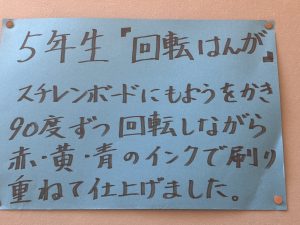 5年生『回転はんが』
スチレンボードにもようをかき
90度ずつ回転しながら
赤・黄・青のインクで刷り
重ねて仕上げました。